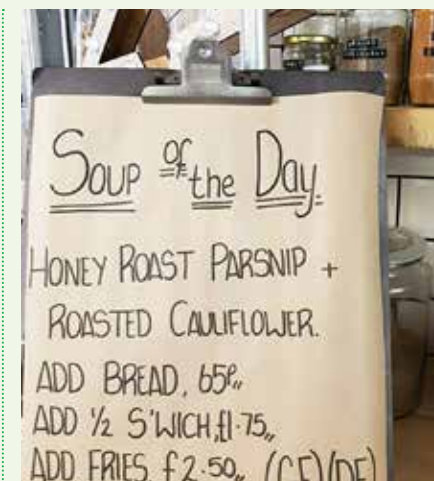 SOUP of the Day.
HONEY ROAST PARSNIP +
ROASTED CAULIFLOWER.
ADD BREAD, 65P,,
ADD ½ S'WICH, £1.75,,
ADD FRIES £2.50,, (GF)(DF)